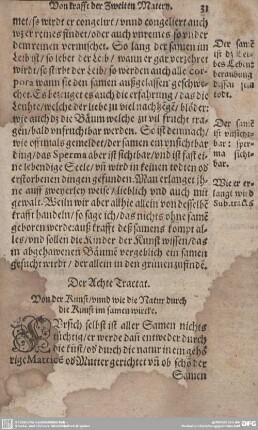 Von krafft der Zweiten Matery. 31
met/so wirdt er congelirt/vnnd congeliert auch
wz er reines findet/oder auch vnreines so vnder
dem reinen vermischet. So lang der samen im
Leib ist/so lebet der Leib/wann er gar verzehret
wirdt/so stirbt der Leib/so werden auch alle cor-
pora wann sie den samen außgelassen geschwe-
chet. Es bezeuget es auch die erfahrung/das die
Leuthe/welche der liebe zu viel nachhengen/blöder:
wie auch dz die Bäum welche zu vil frucht tra-
gen/bald vnfruchtbar werden. So ist demnach/
wie offtmals gemeldet/der samen ein vnsichtbar
ding/das Sperma aber ist sichtbar/vnd ist fast ei-
ne lebendige Seele/vnd wirdt in keinen todten oder
erstorbenen dingen gefunden. Man erlanget ih-
ne auff zweyerley weise/lieblich vnd auch mit
gewalt. Weiln wir aber allhie allein von desselben
krafft handeln/so sage ich/das nichts ohne samen
geboren werde: auß krafft deß samens kompt al-
les/vnd sollen die Kinder der Kunst wissen/das
in abgehawenen Bäumen vergeblich ein samen
gesucht wirdt/der allein in den grünen zu finden.
Der samen
ist deß Lei-
bes Leben:
beraubung
dessen der
todt.
Der samen
ist vnsicht-
bar: sper-
ma sicht-
bar.
Wie er er-
langt wird
Der Achte Tractat.
Von der Kunst/vnnd wie die Natur durch
die Kunst im samen wircke.
selbst ist aller Samen nichts
tüchtig/er werde dan entweder durch
die kunst/oder durch die natur in ein gehö-
rige oder Mutter gerichtet vnd ob schon der
Samen